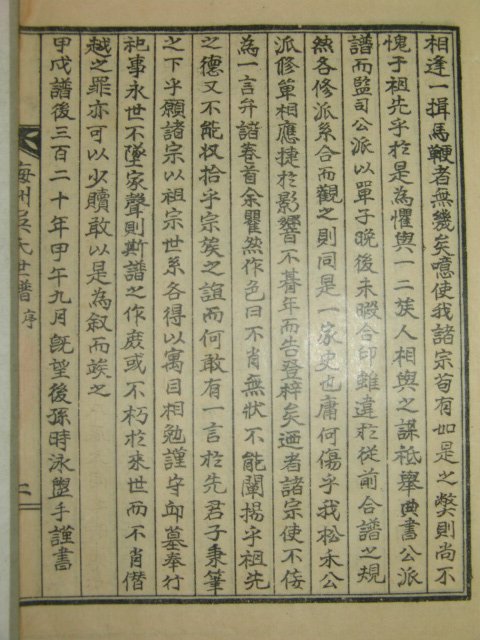 相逢一揖馬鞭者無幾矣噫使我諸宗苟有如是之獘則尚不
愧于祖先乎於是為懼與一二族人相與之謀祗舉典書公派
譜而監司公派以單子晚後未暇合印雖違於從前合譜之規
然各修派系合而觀之則同是一家史也庸何傷乎我松禾公
派修單相應捷於影響不朞年而告登梓矣迺者諸宗使不侫
為一言弁諸卷首余瞿然作色曰不肖無狀不能闡揚乎祖先
之德又不能收拾乎宗族之誼而何敢有一言於先君子秉筆
之下乎願諸宗以祖宗世系各得以寓目相勉謹守邱墓奉行
祀事永世不墜家聲則斯譜之作庶或不朽於來世而不肖僭
越之罪亦可以少贖敢以是為叙而竢之
甲戊譜後三百二十年甲午九月旣望後孫時泳盥手謹書
海州吳氏世譜 序 二